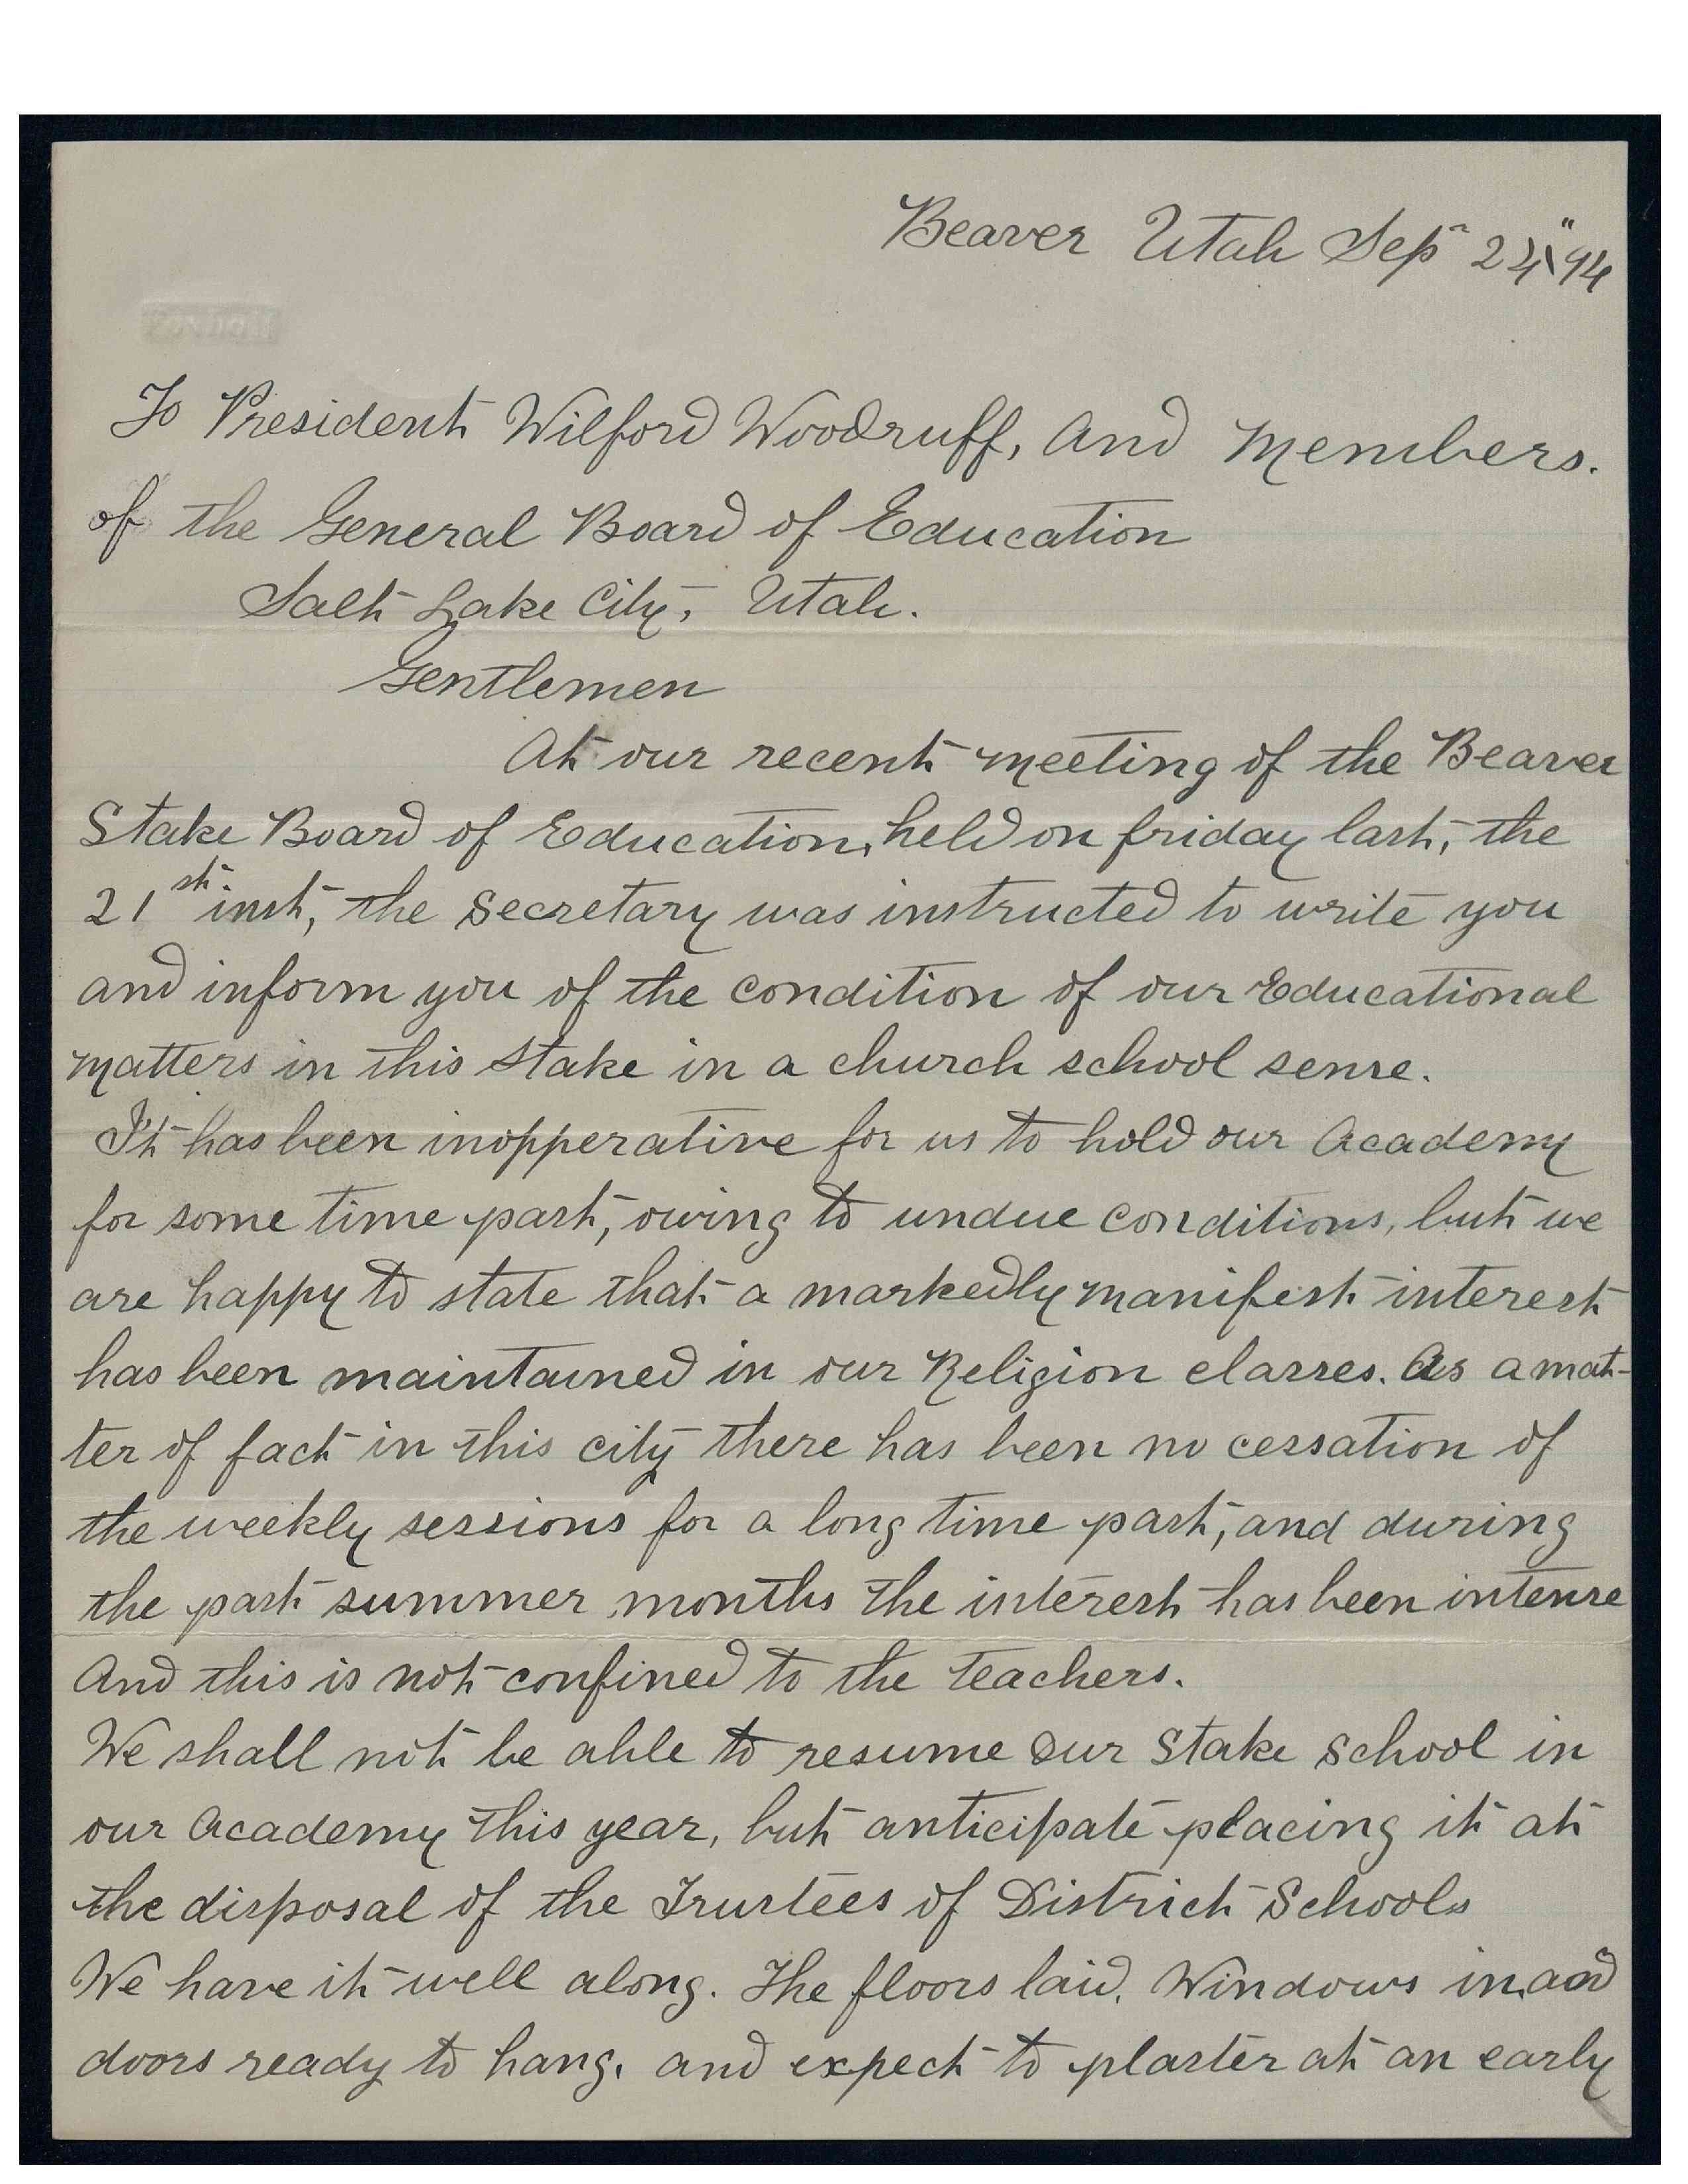 Beaver Utah Sep 24" 94
To President Wilford Woodruff, And Members.
of the General Board of Education
Salt Lake City, Utah.
Gentlemen
At our recent meeting of the Beaver
Stake Board of Education, held on friday last, the
21st inst, the Secretary was instructed to write you
and inform you of the condition of our Educational
matters in this Stake in a church school sense.
It has been inopperative for us to hold our Academy
for some time past, owing to undue conditions, but we
are happy to state that a markedly manifest interest
has been maintained in our Religion classes. As a mat-
ter of fact in this city there has been no cessation of
the weekly sessions for a long time past, and during
the past summer months the interest has been intense
And this is not confined to the teachers.
We shall not be able to resume our Stake School in
our Academy this year, but anticipate placing it at
the disposal of the Trustees of District Schools
We have it well along. The floors laid, Windows in, and
doors ready to hang, and expect to plaster at an early